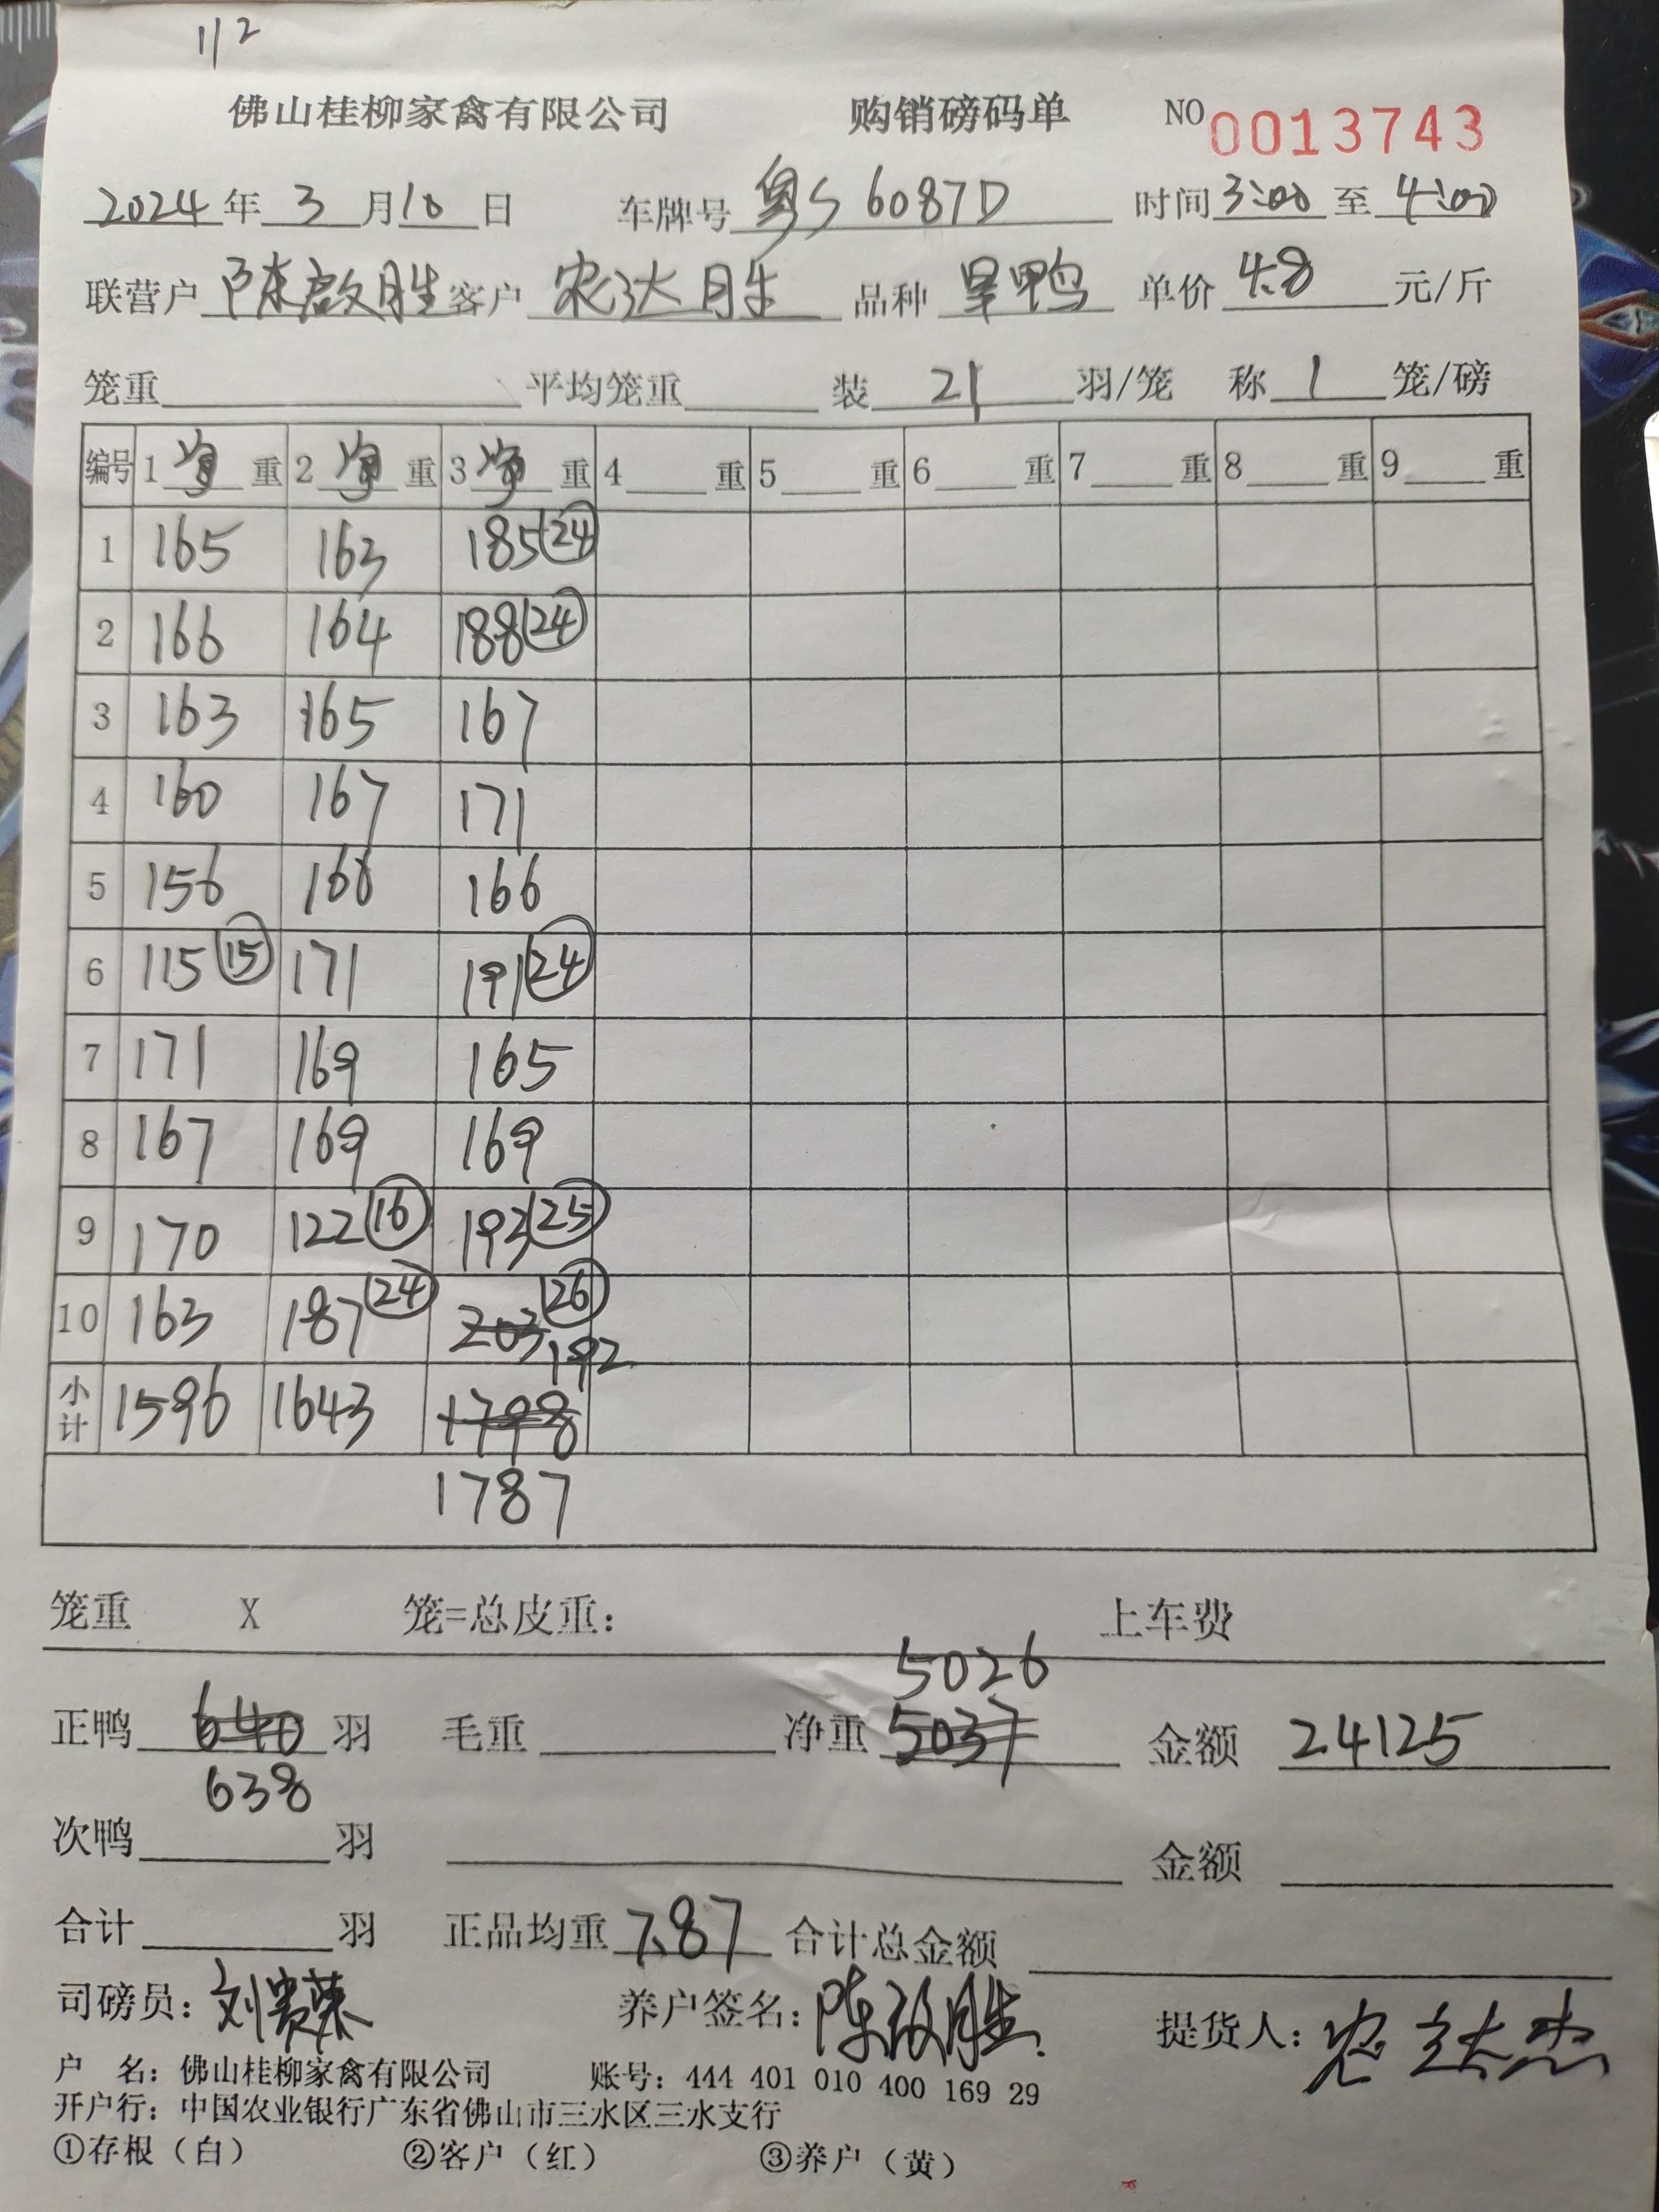 1/2
佛山桂柳家禽有限公司 购销磅码单 NO 0013743
2024年3月10日 车牌号 粤S 6087D 时间 3:00 至 4:00
联营户 陈啟胜 客户 农达胜 品种 旱鸭 单价 4.8 元/斤
笼重 平均笼重 装 21 羽/笼 称 1 笼/磅
编号 1 净 重 2 净 重 3 净 重 4 重 5 重 6 重 7 重 8 重 9 重
1 165 163 185 24
2 166 164 188 24
3 163 165 167
4 160 167 171
5 156 166 166
6 115 15 171 191 24
7 171 169 165
8 167 169 169
9 170 122 16 193 25
10 163 187 24 203 26
192
小计 1596 1643 1798
1787
笼重 X 笼=总皮重: 上车费
5026
正鸭 640 羽 毛重 净重 5037 金额 24125
638
次鸭 羽 金额
合计 羽 正品均重 7.87 合计总金额
司磅员: 刘贵荣 养户签名: 陈啟胜 提货人:
户 名: 佛山桂柳家禽有限公司 账号: 444 401 010 400 169 29
开户行: 中国农业银行广东省佛山市三水区三水支行
①存根（白） ②客户（红） ③养户（黄）